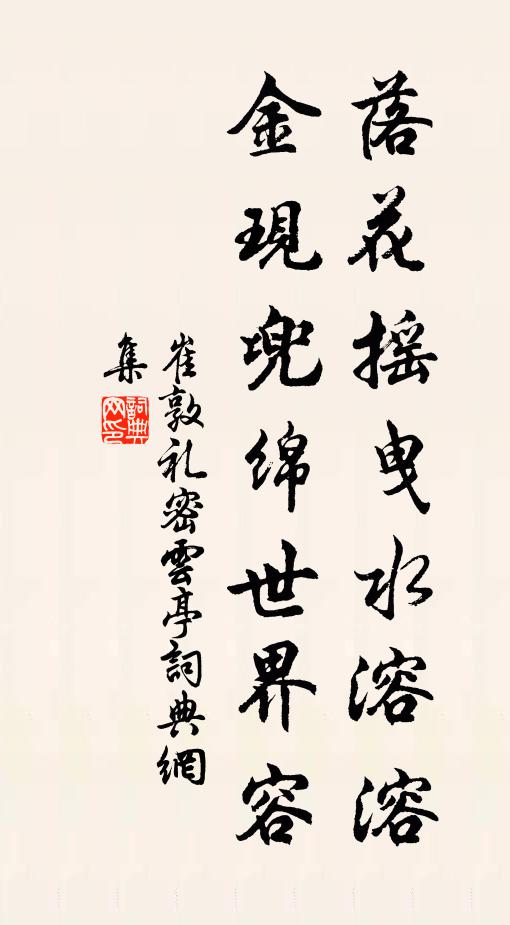 落花摇曳水溶溶
金現兜綿世界容
崔敦礼密雲亭詞典網
集
詞典網印